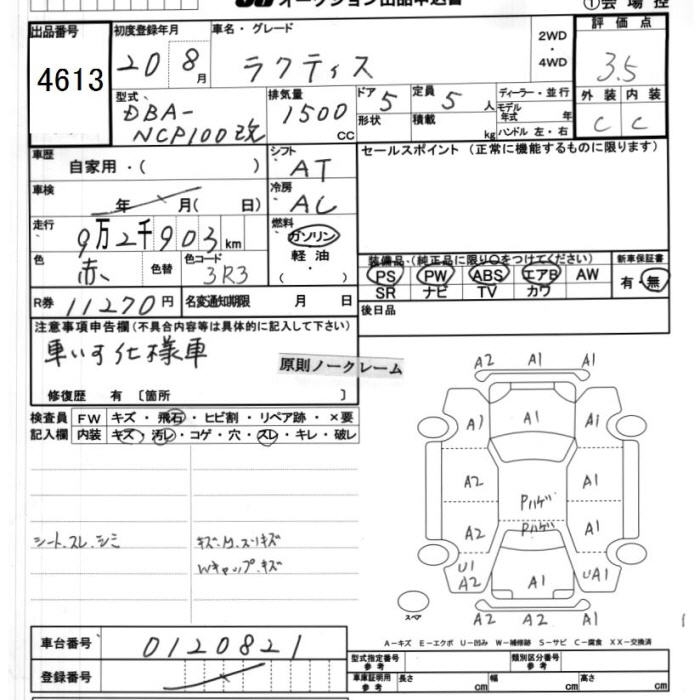 オークション出品申込書
①会場控
出品番号
4613
初度登録年月
20 8月
車名・グレード
ラクティス
2WD
・
4WD
評価点
3.5
外装 内装
C C
型式
DBA-
NCP100改
排気量
1500
CC
ドア 5
形状
定員 5 人
積載 kg
ディーラー・並行
モデル年式 年
ハンドル 左・右
車歴
自家用・( )
シフト
AT
セールスポイント (正常に機能するものに限ります)
車検
年 月( 日)
冷房
AC
走行
9万2千903km
燃料
ガソリン
軽油
( ・ )
色
赤
色替
色コード
3R3
装備品 (純正品に限り○をつけてください)
PS PW ABS エアB AW
SR ナビ TV カワ
新車保証書
有・無
R券 11270円
名変通知期限 月 日
後日品
注意事項申告欄(不具合内容等は具体的に記入して下さい)
車いす仕様車
原則ノークレーム
修復歴 有 〔箇所 〕
検査員
記入欄
FW キズ・飛石・ヒビ割・リペア跡・×要
内装 キズ・汚レ・コゲ・穴・スレ・キレ・破レ
シート.スレ.シミ
キズ.凹.スリキズ
Wキャップ.キズ
A2 A1 A1
A1 A1 A1
A2 A1
Pハゲ
A2 Pハゲ A1
U1
A2 A1 UA1
スペア
A2 A2 A1
A-キズ E-エクボ U-凹み W-補修跡 S-サビ C-腐食 XX-交換済
車台番号 0120821
登録番号
型式指定番号
参考
類別区分番号
参考
車庫証明用
参考
長さ cm
幅 cm
高さ cm